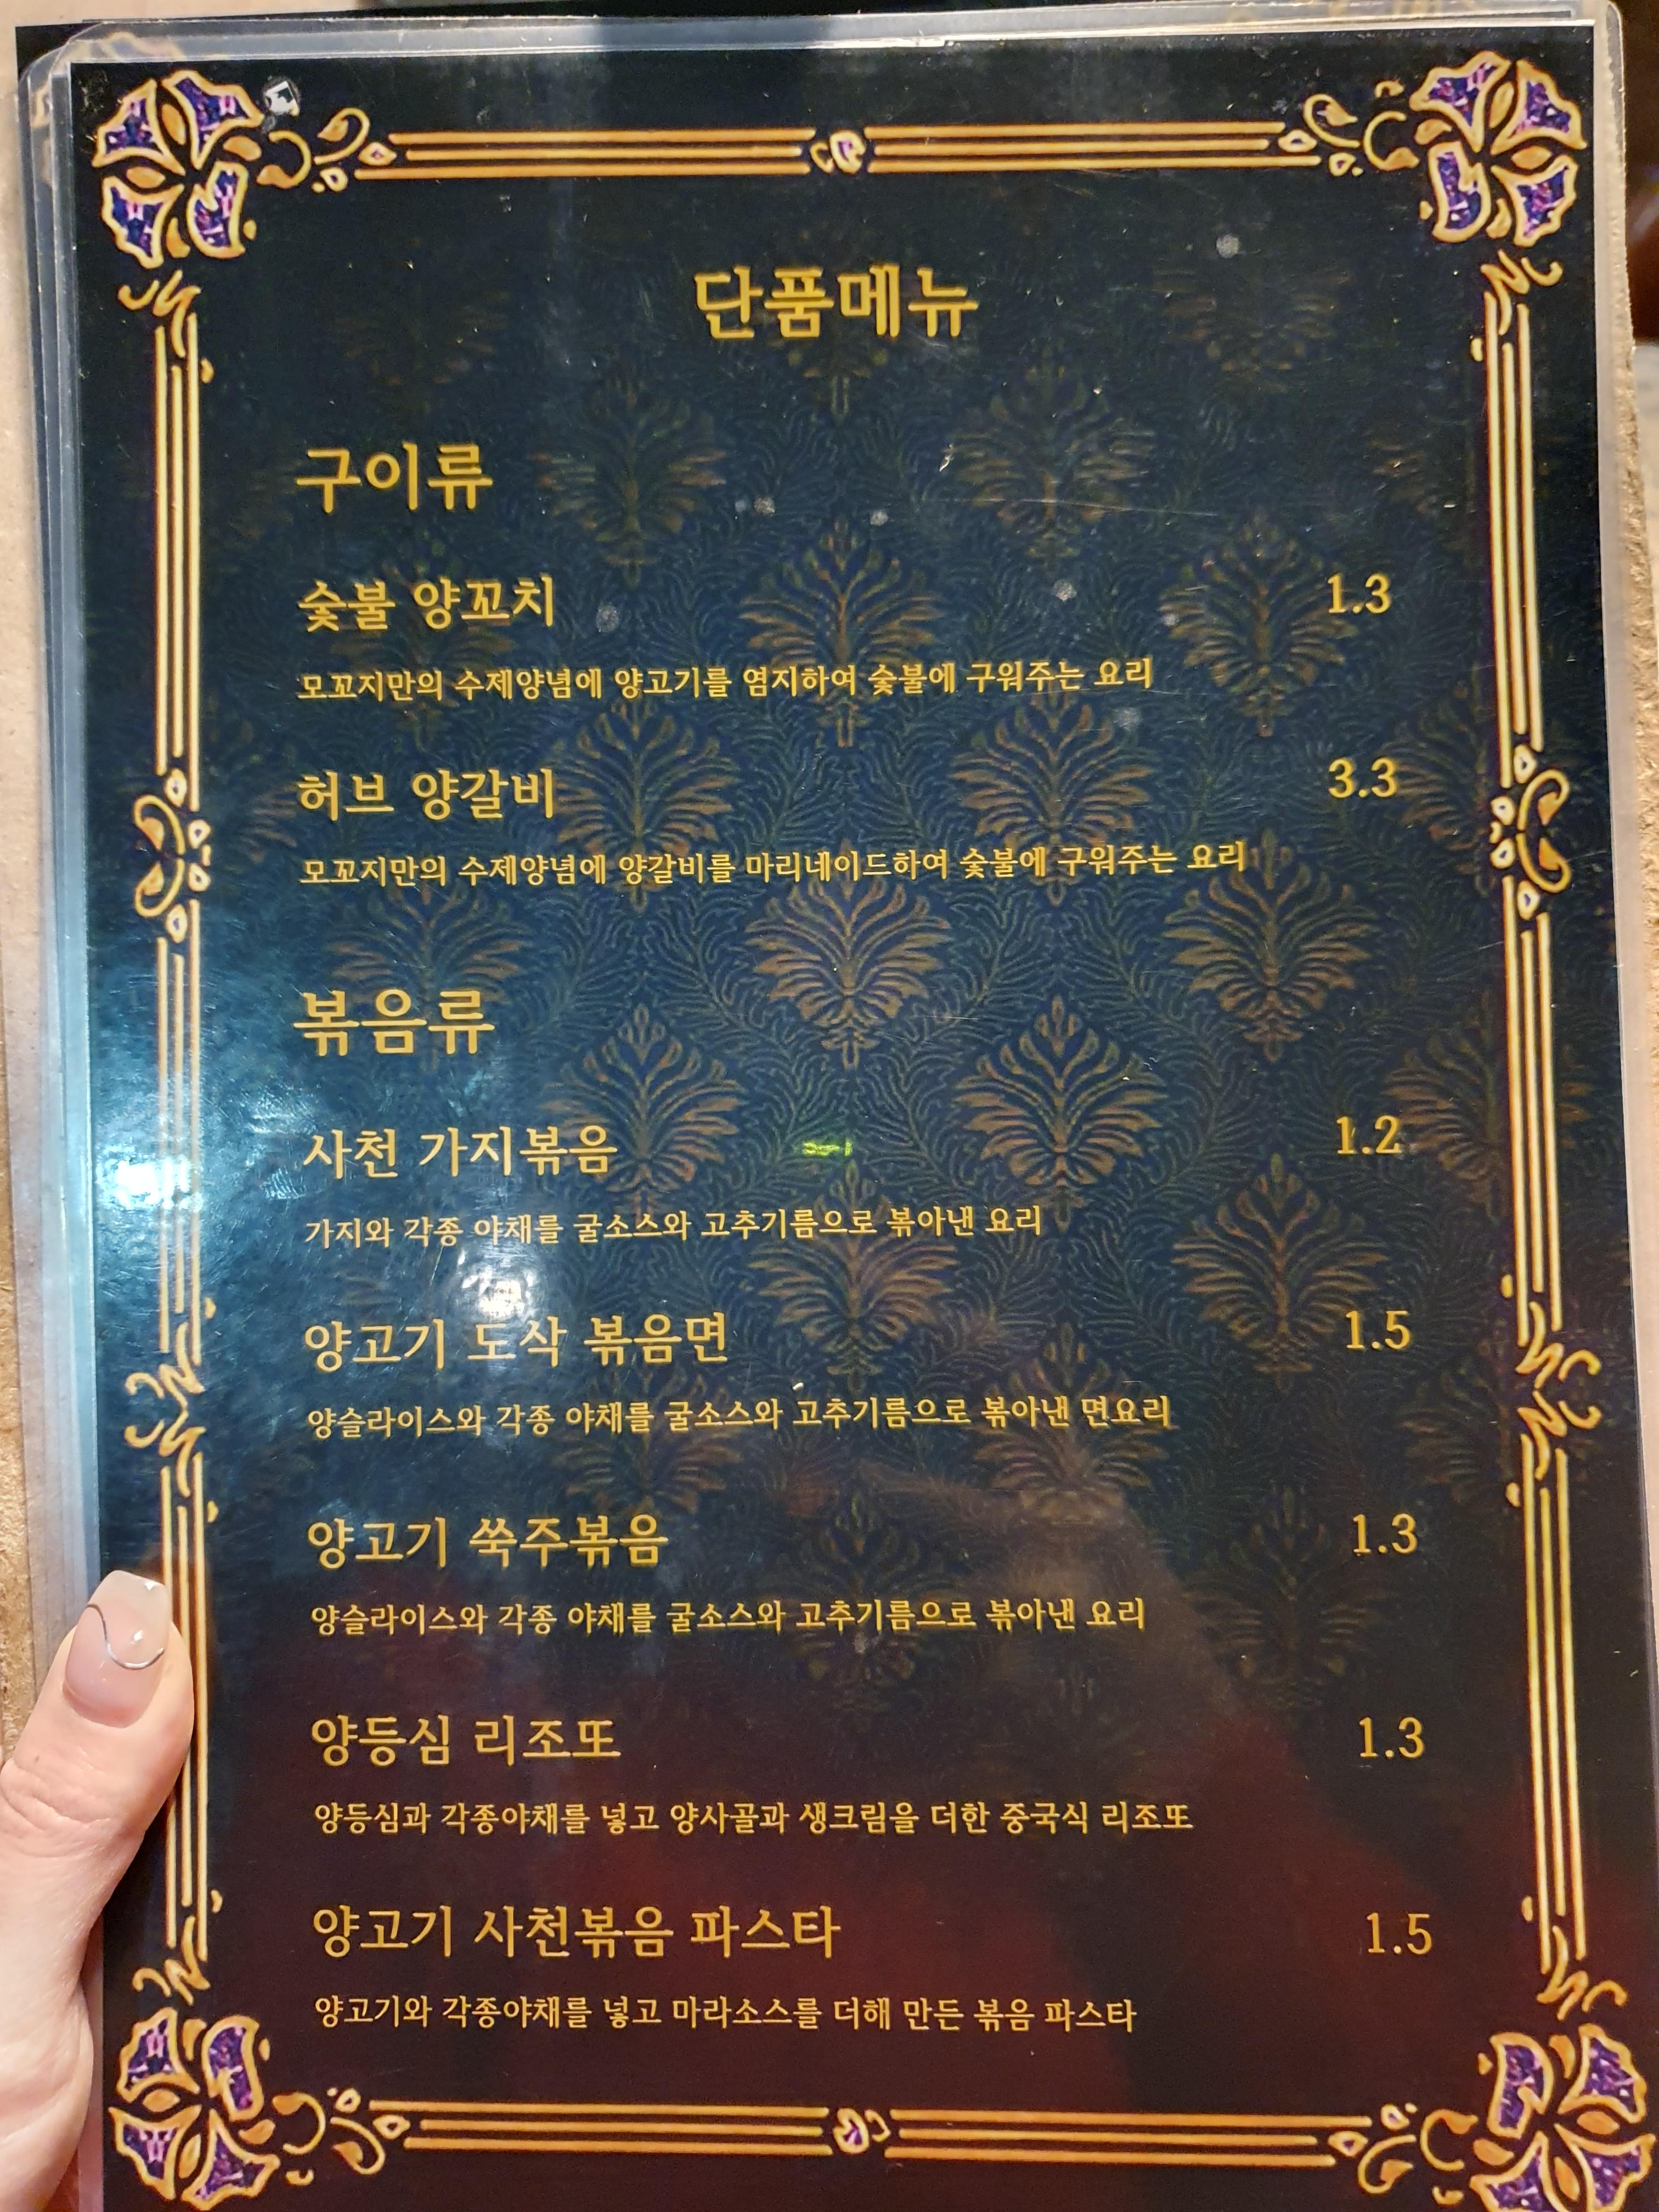 단품메뉴
구이류
숯불 양꼬치 1.3
모꼬지만의 수제양념에 양고기를 염지하여 숯불에 구워주는 요리
허브 양갈비 3.3
모꼬지만의 수제양념에 양갈비를 마리네이드하여 숯불에 구워주는 요리
볶음류
사천 가지볶음 1.2
가지와 각종 야채를 굴소스와 고추기름으로 볶아낸 요리
양고기 도삭 볶음면 1.5
양슬라이스와 각종 야채를 굴소스와 고추기름으로 볶아낸 면요리
양고기 쑥주볶음 1.3
양슬라이스와 각종 야채를 굴소스와 고추기름으로 볶아낸 요리
양등심 리조또 1.3
양등심과 각종야채를 넣고 양사골과 생크림을 더한 중국식 리조또
양고기 사천볶음 파스타 1.5
양고기와 각종야채를 넣고 마라소스를 더해 만든 볶음 파스타